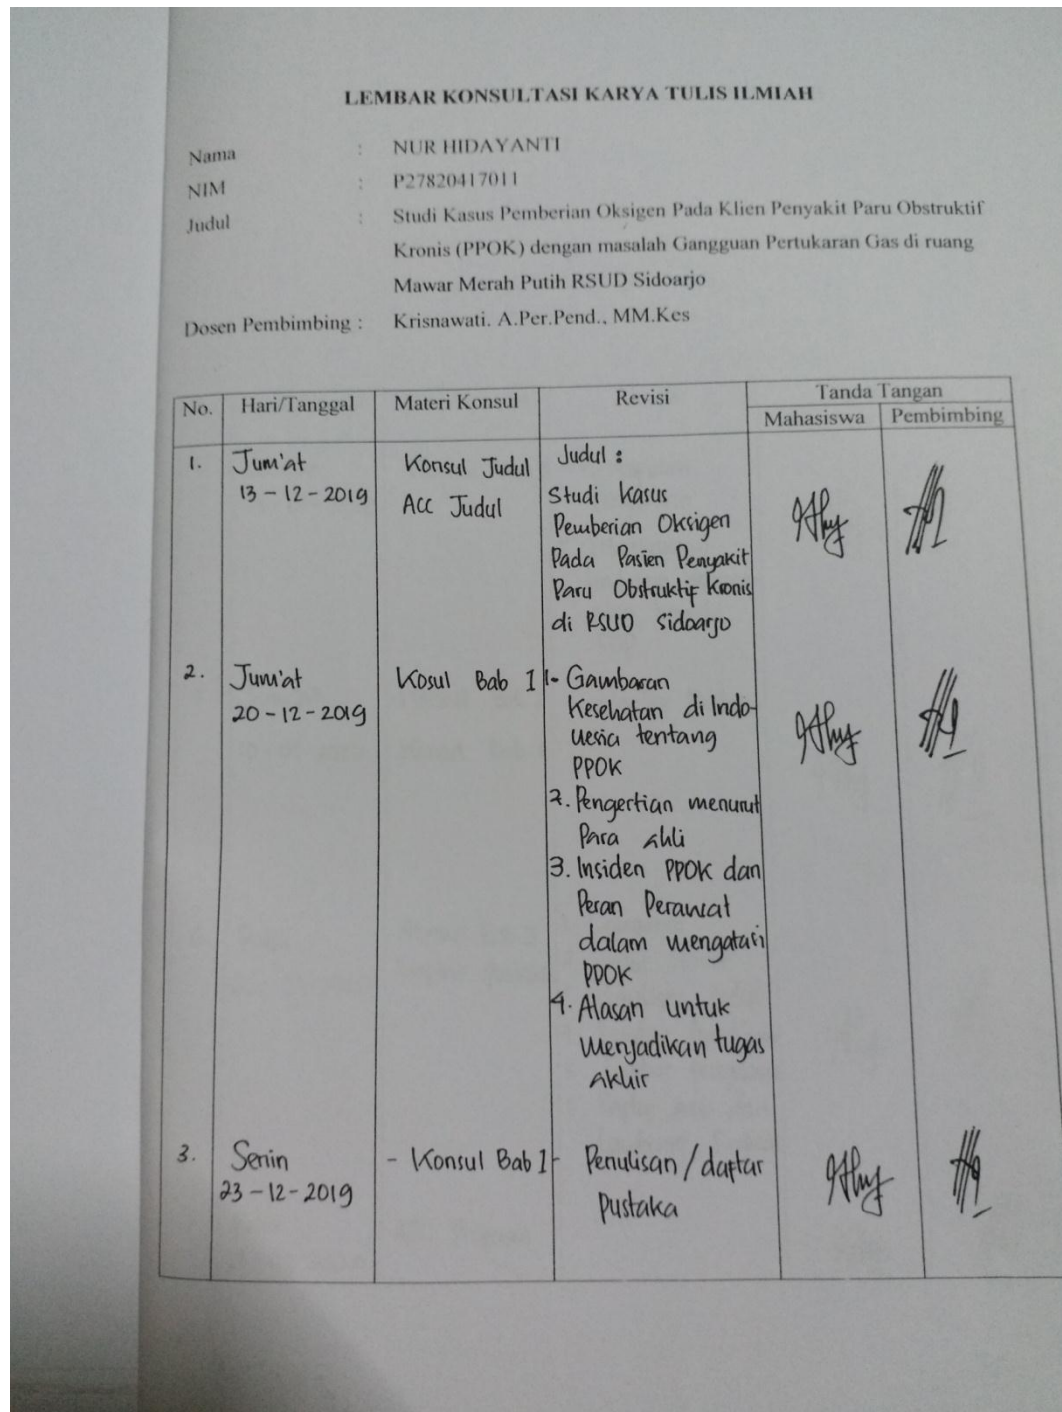 LEMBAR KONSULTASI KARYA TULIS ILMIAH
Nama : NUR HIDAYANTI
NIM : P27820417011
Judul : Studi Kasus Pemberian Oksigen Pada Klien Penyakit Paru Obstruktif
Kronis (PPOK) dengan masalah Gangguan Pertukaran Gas di ruang
Mawar Merah Putih RSUD Sidoarjo
Dosen Pembimbing : Krisnawati. A.Per.Pend., MM.Kes
No. Hari/Tanggal Materi Konsul Revisi Tanda Tangan
Mahasiswa Pembimbing
1. Jum'at
13-12-2019
Konsul Judul
Acc Judul
Judul :
Studi Kasus
Pemberian Oksigen
Pada Pasien Penyakit
Paru Obstruktif Kronis
di RSUD Sidoarjo
2. Jum'at
20-12-2019
Kosul Bab 1
1- Gambaran
Kesehatan di Indo-
nesia tentang
PPOK
2. Pengertian menurut
Para Ahli
3. Insiden PPOK dan
Peran Perawat
dalam mengatasi
PPOK
4. Alasan untuk
Menjadikan tugas
Akhir
3. Senin
23-12-2019
- Konsul Bab 1
- Penulisan/daftar
Pustaka